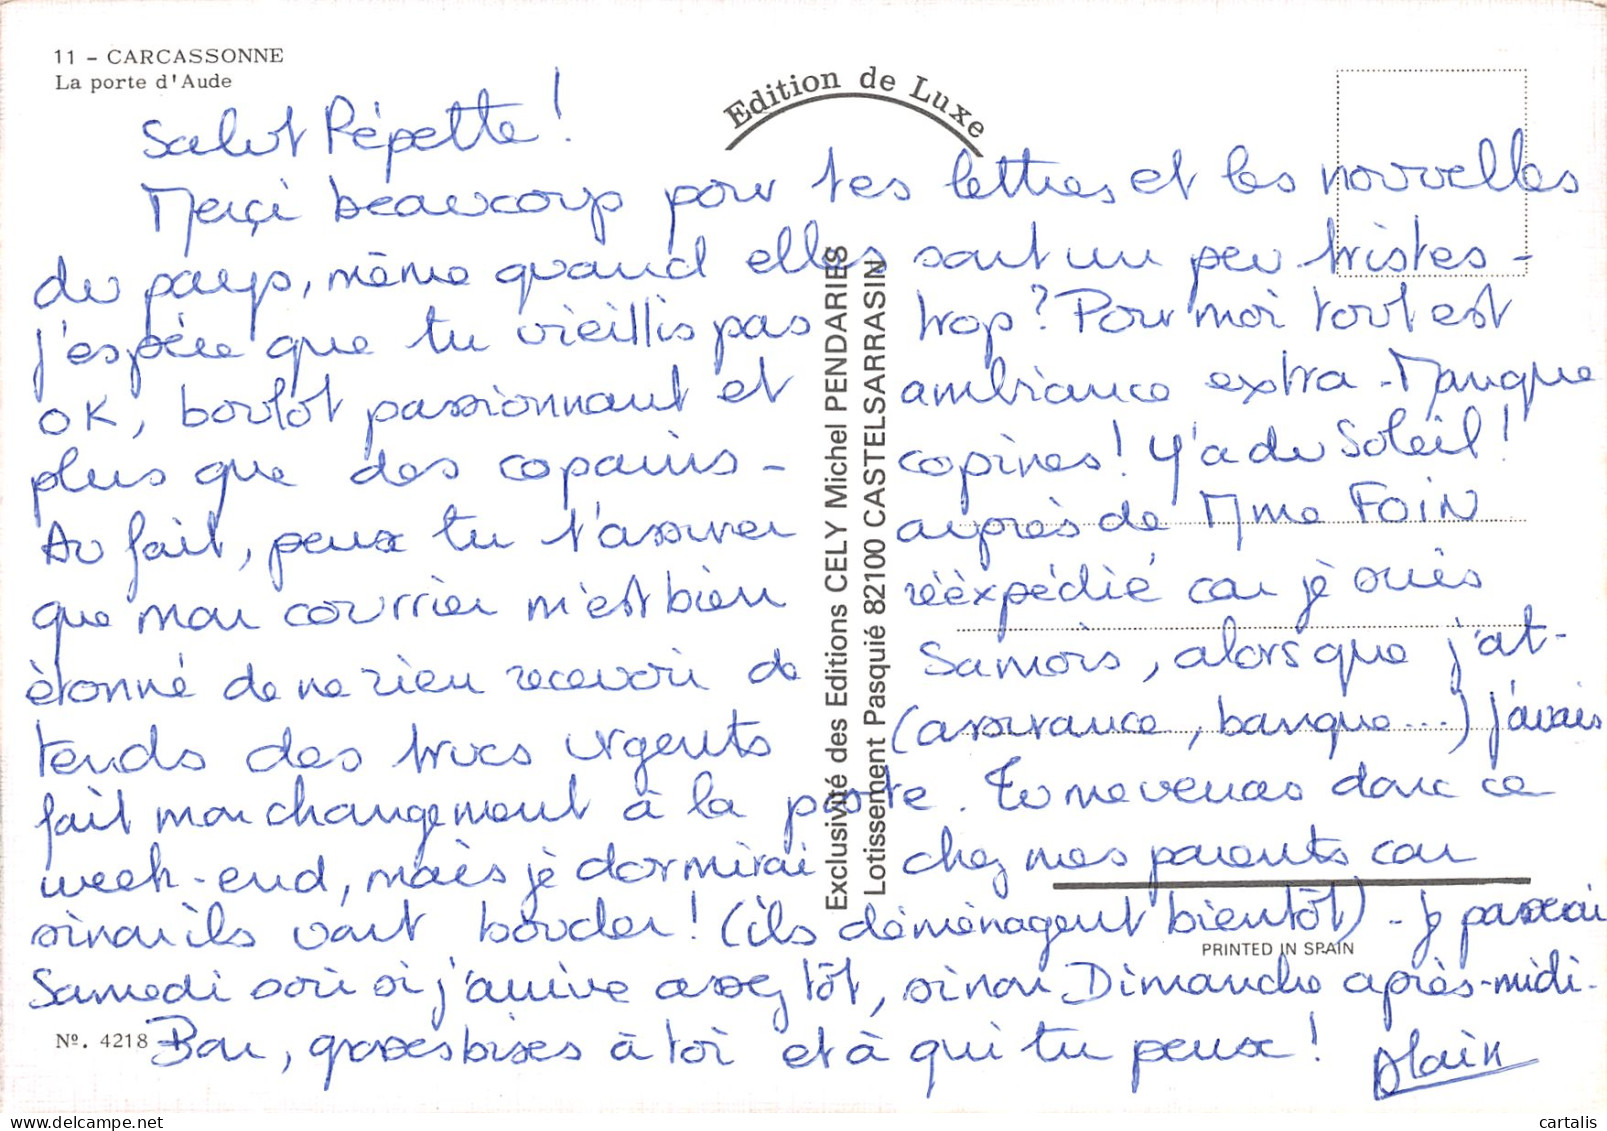 11 - CARCASSONNE
La porte d'Aude
Edition de Luxe
Salut Pépette !
Merçi beaucoup pour tes lettres et les nouvelles
du pays, même quand elles sont un peu tristes -
j'espère que tu vieillis pas trop ? Pour moi tout est
OK, boulot passionnant et ambiance extra - Manque
plus que des copains - copines ! Y'a du Soleil !
Au fait, peux tu t'assurer auprès de Mme FOIN
que mon courrier m'est bien réèxpédié car je suis
ètonné de ne rien recevoir de Samois, alors que j'at-
tends des trucs urgents (assurance, banque...) j'avais
fait mon changement à la poste. Tu me verras donc ce
week-end, mais je dormirai chez mes parents car
sinon ils vont bouder ! (ils déménagent bientôt) - Je passerai
Samedi soir si j'arrive assez tôt, sinon Dimanche après-midi.
Bon, grosses bises à toi et à qui tu peux !
Alain
Nº. 4218
Exclusivité des Editions CELY Michel PENDARIES
Lotissement Pasquié 82100 CASTELSARRASIN
PRINTED IN SPAIN
cartalis